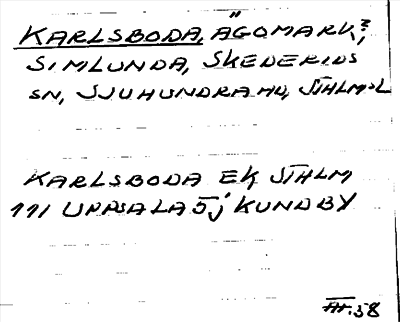 KARLSBODA, ÄGOMARK?,
SIMLUNDA, SKEDERIDS
SN, SJUHUNDRA HD, STHLM:L
KARLSBODA EK STHLM
111 UPPSALA 5j KUNDBY
III.58